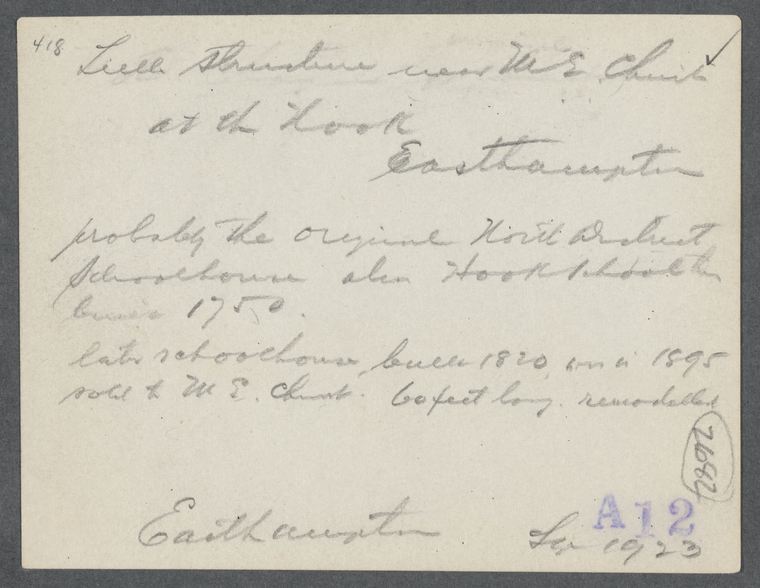 418
Little structure near M E Church
at the Hook
Easthampton
probably the original North District
Schoolhouse also Hook School
built 1750.
later schoolhouse, built 1820, was in 1895
sold to M E. Church. 60 feet long. remodelled
2684
A12
Easthampton 1923